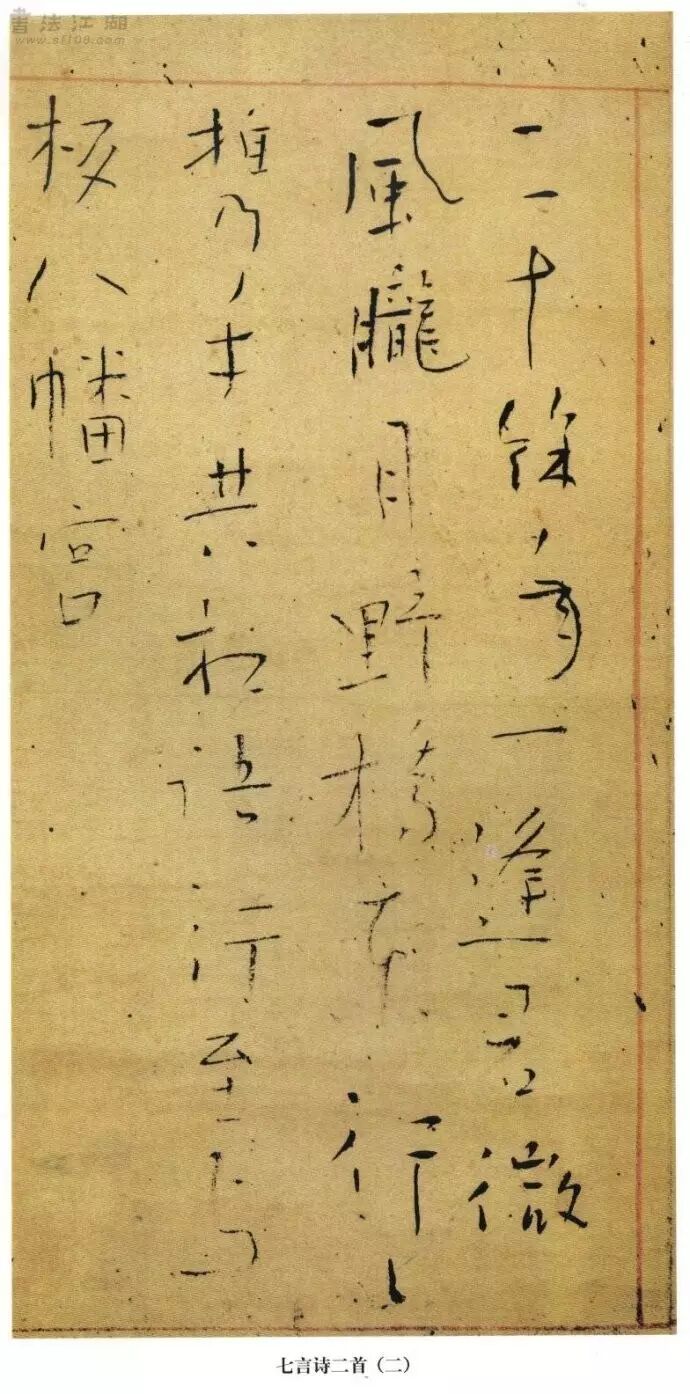 書法江湖
www.sf108.com
二十餘年一逢君微
風朧月野橋東行々
携手共相語行至与
板八幡宮
七言诗二首（二）